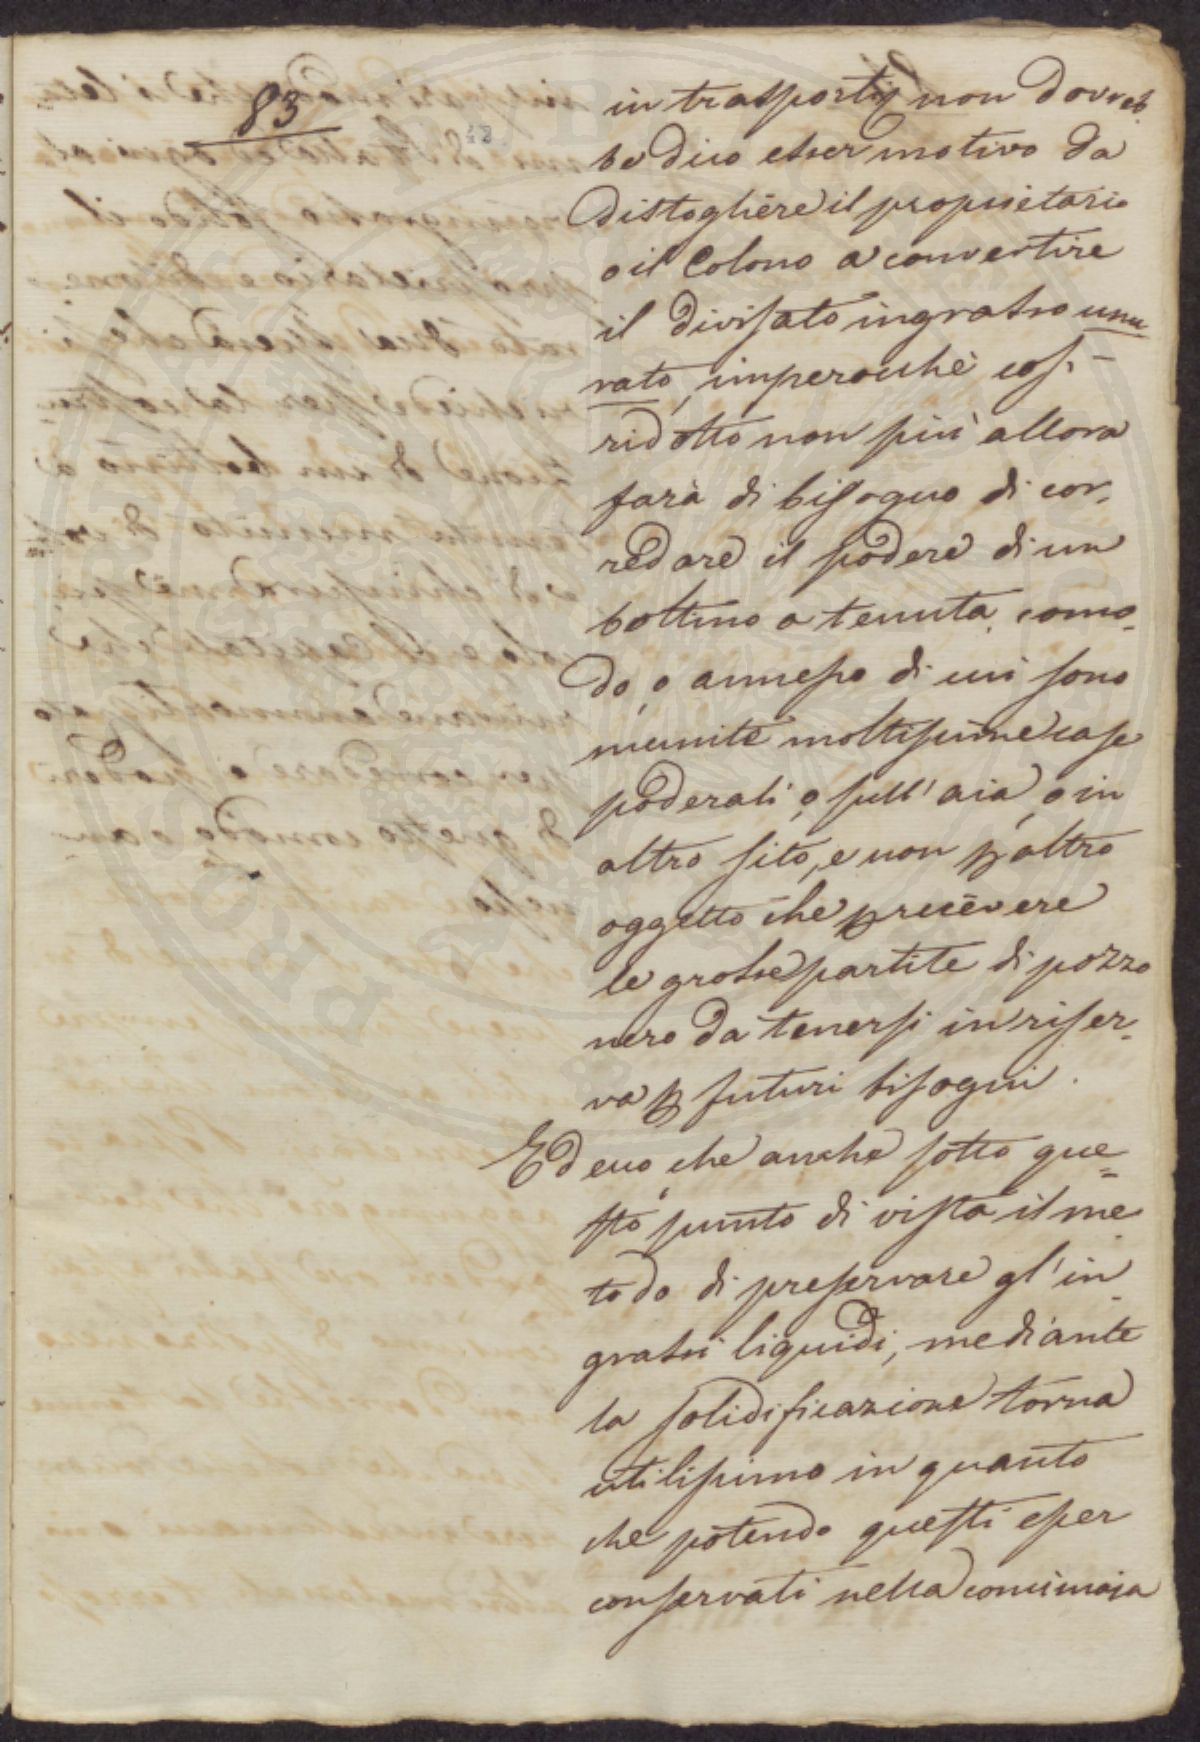 83
in trasporti, non dovreb.
be dico esser motivo da
distogliere il proprietario
o il Colono a convertire
il divisato ingrasso unu
rato, imperocchè così
ridotto non più allora
farà di bisogno di cor.
redare il podere di un
bottino a tenuta, como.
do, o annesso di cui sono
munite moltissime case
poderali, o sull'aia, o in
altro sito, e non p altro
oggetto che p ricevere
le grosse partite di pozzo
nero da tenersi in riser.
va p futuri bisogni.
Ed ecco, che anche sotto que=
sto punto di vista il me
todo di preservare gl'in
grassi liquidi, mediante
la solidificazione torna
utilissimo in quanto
che potendo questi esser
conservati nella concimaja